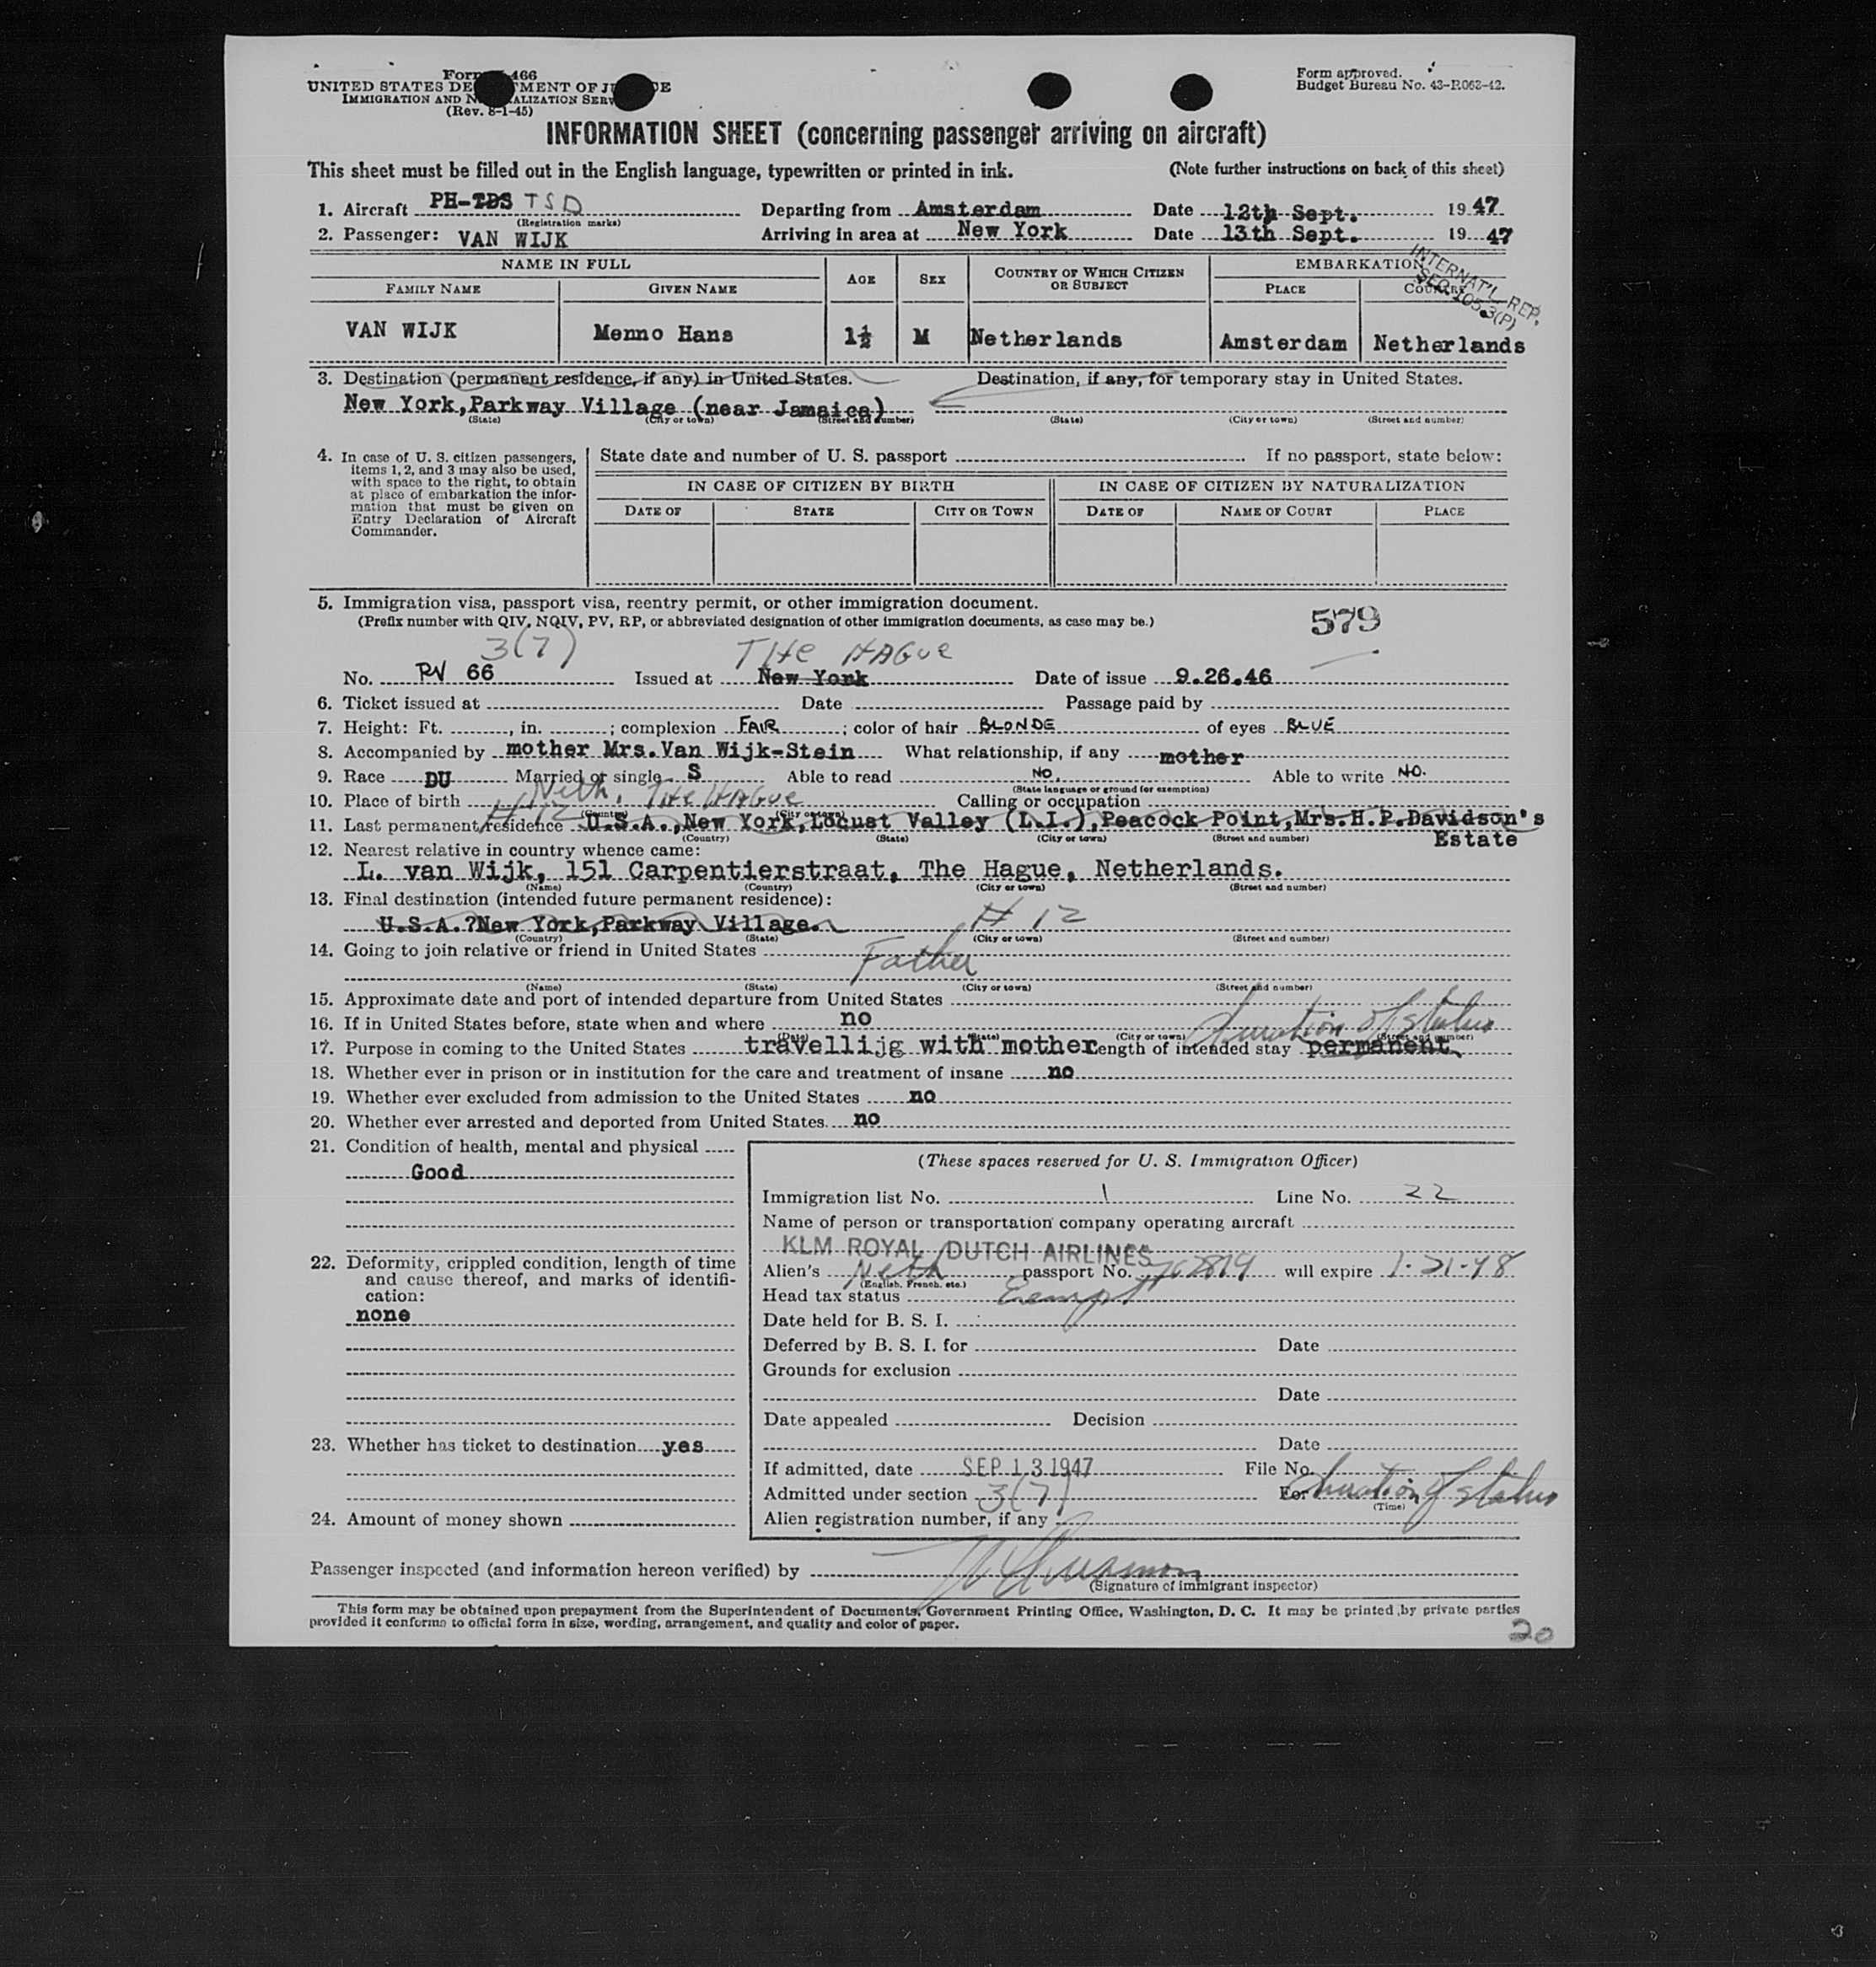 Form 466
UNITED STATES DE MENT OF J E
IMMIGRATION AND N ALIZATION SERV
(Rev. 8-1-45)
Form approved.
Budget Bureau No. 43-R063-42.
INFORMATION SHEET (concerning passenger arriving on aircraft)
This sheet must be filled out in the English language, typewritten or printed in ink. (Note further instructions on back of this sheet)
1. Aircraft PH-TDS TSD Departing from Amsterdam Date 12th Sept. 1947
(Registration marks)
2. Passenger: VAN WIJK Arriving in area at New York Date 13th Sept. 1947
INTERNAT'L REP.
SEC. 105.3(P)
NAME IN FULL AGE SEX COUNTRY OF WHICH CITIZEN OR SUBJECT EMBARKATION
FAMILY NAME GIVEN NAME PLACE COUNTRY
VAN WIJK Menno Hans 1½ M Netherlands Amsterdam Netherlands
3. Destination (permanent residence, if any) in United States. Destination, if any, for temporary stay in United States.
New York,Parkway Village (near Jamaica)
(State) (City or town) (Street and number) (State) (City or town) (Street and number)
4. In case of U. S. citizen passengers, items 1, 2, and 3 may also be used, with space to the right, to obtain at place of embarkation the information that must be given on Entry Declaration of Aircraft Commander.
State date and number of U. S. passport If no passport, state below:
IN CASE OF CITIZEN BY BIRTH IN CASE OF CITIZEN BY NATURALIZATION
DATE OF STATE CITY OR TOWN DATE OF NAME OF COURT PLACE
5. Immigration visa, passport visa, reentry permit, or other immigration document.
(Prefix number with QIV, NQIV, PV, RP, or abbreviated designation of other immigration documents, as case may be.)
579
3(7) THE HAGUE
No. PV 66 Issued at New York Date of issue 9.26.46
6. Ticket issued at Date Passage paid by
7. Height: Ft. , in. ; complexion FAIR ; color of hair BLONDE of eyes BLUE
8. Accompanied by mother Mrs.Van Wijk-Stein What relationship, if any mother
9. Race DU Married or single S Able to read NO. Able to write NO.
(State language or ground for exemption)
10. Place of birth Neth. THE HAGUE Calling or occupation
(Country) (City or town)
# 12
11. Last permanent residence U.S.A.,New York,Locust Valley (L.I.),Peacock Point,Mrs.H.P.Davidson's
Estate
(Country) (State) (City or town) (Street and number)
12. Nearest relative in country whence came:
L. van Wijk, 151 Carpentierstraat, The Hague, Netherlands.
(Name) (Country) (City or town) (Street and number)
13. Final destination (intended future permanent residence):
U.S.A.?New York,Parkway Village. # 12
(Country) (State) (City or town) (Street and number)
14. Going to join relative or friend in United States
Father
(Name) (State) (City or town) (Street and number)
15. Approximate date and port of intended departure from United States
16. If in United States before, state when and where no
(Date) (State) (City or town) (Street and number)
duration of status
17. Purpose in coming to the United States travellijg with mother Length of intended stay permanent
18. Whether ever in prison or in institution for the care and treatment of insane no
19. Whether ever excluded from admission to the United States no
20. Whether ever arrested and deported from United States no
21. Condition of health, mental and physical
Good
22. Deformity, crippled condition, length of time and cause thereof, and marks of identification:
none
23. Whether has ticket to destination yes
24. Amount of money shown
(These spaces reserved for U. S. Immigration Officer)
Immigration list No. 1 Line No. 22
Name of person or transportation company operating aircraft
KLM ROYAL DUTCH AIRLINES
Alien's Neth passport No. will expire 1-21-48
(English, French, etc.)
Head tax status Exempt
Date held for B. S. I.
Deferred by B. S. I. for Date
Grounds for exclusion
Date
Date appealed Decision
Date
If admitted, date SEP 13 1947 File No.
Admitted under section 3(7) For duration of status
(Time)
Alien registration number, if any
Passenger inspected (and information hereon verified) by
(Signature of immigrant inspector)
This form may be obtained upon prepayment from the Superintendent of Documents, Government Printing Office, Washington, D. C. It may be printed by private parties
provided it conforms to official form in size, wording, arrangement, and quality and color of paper.
20